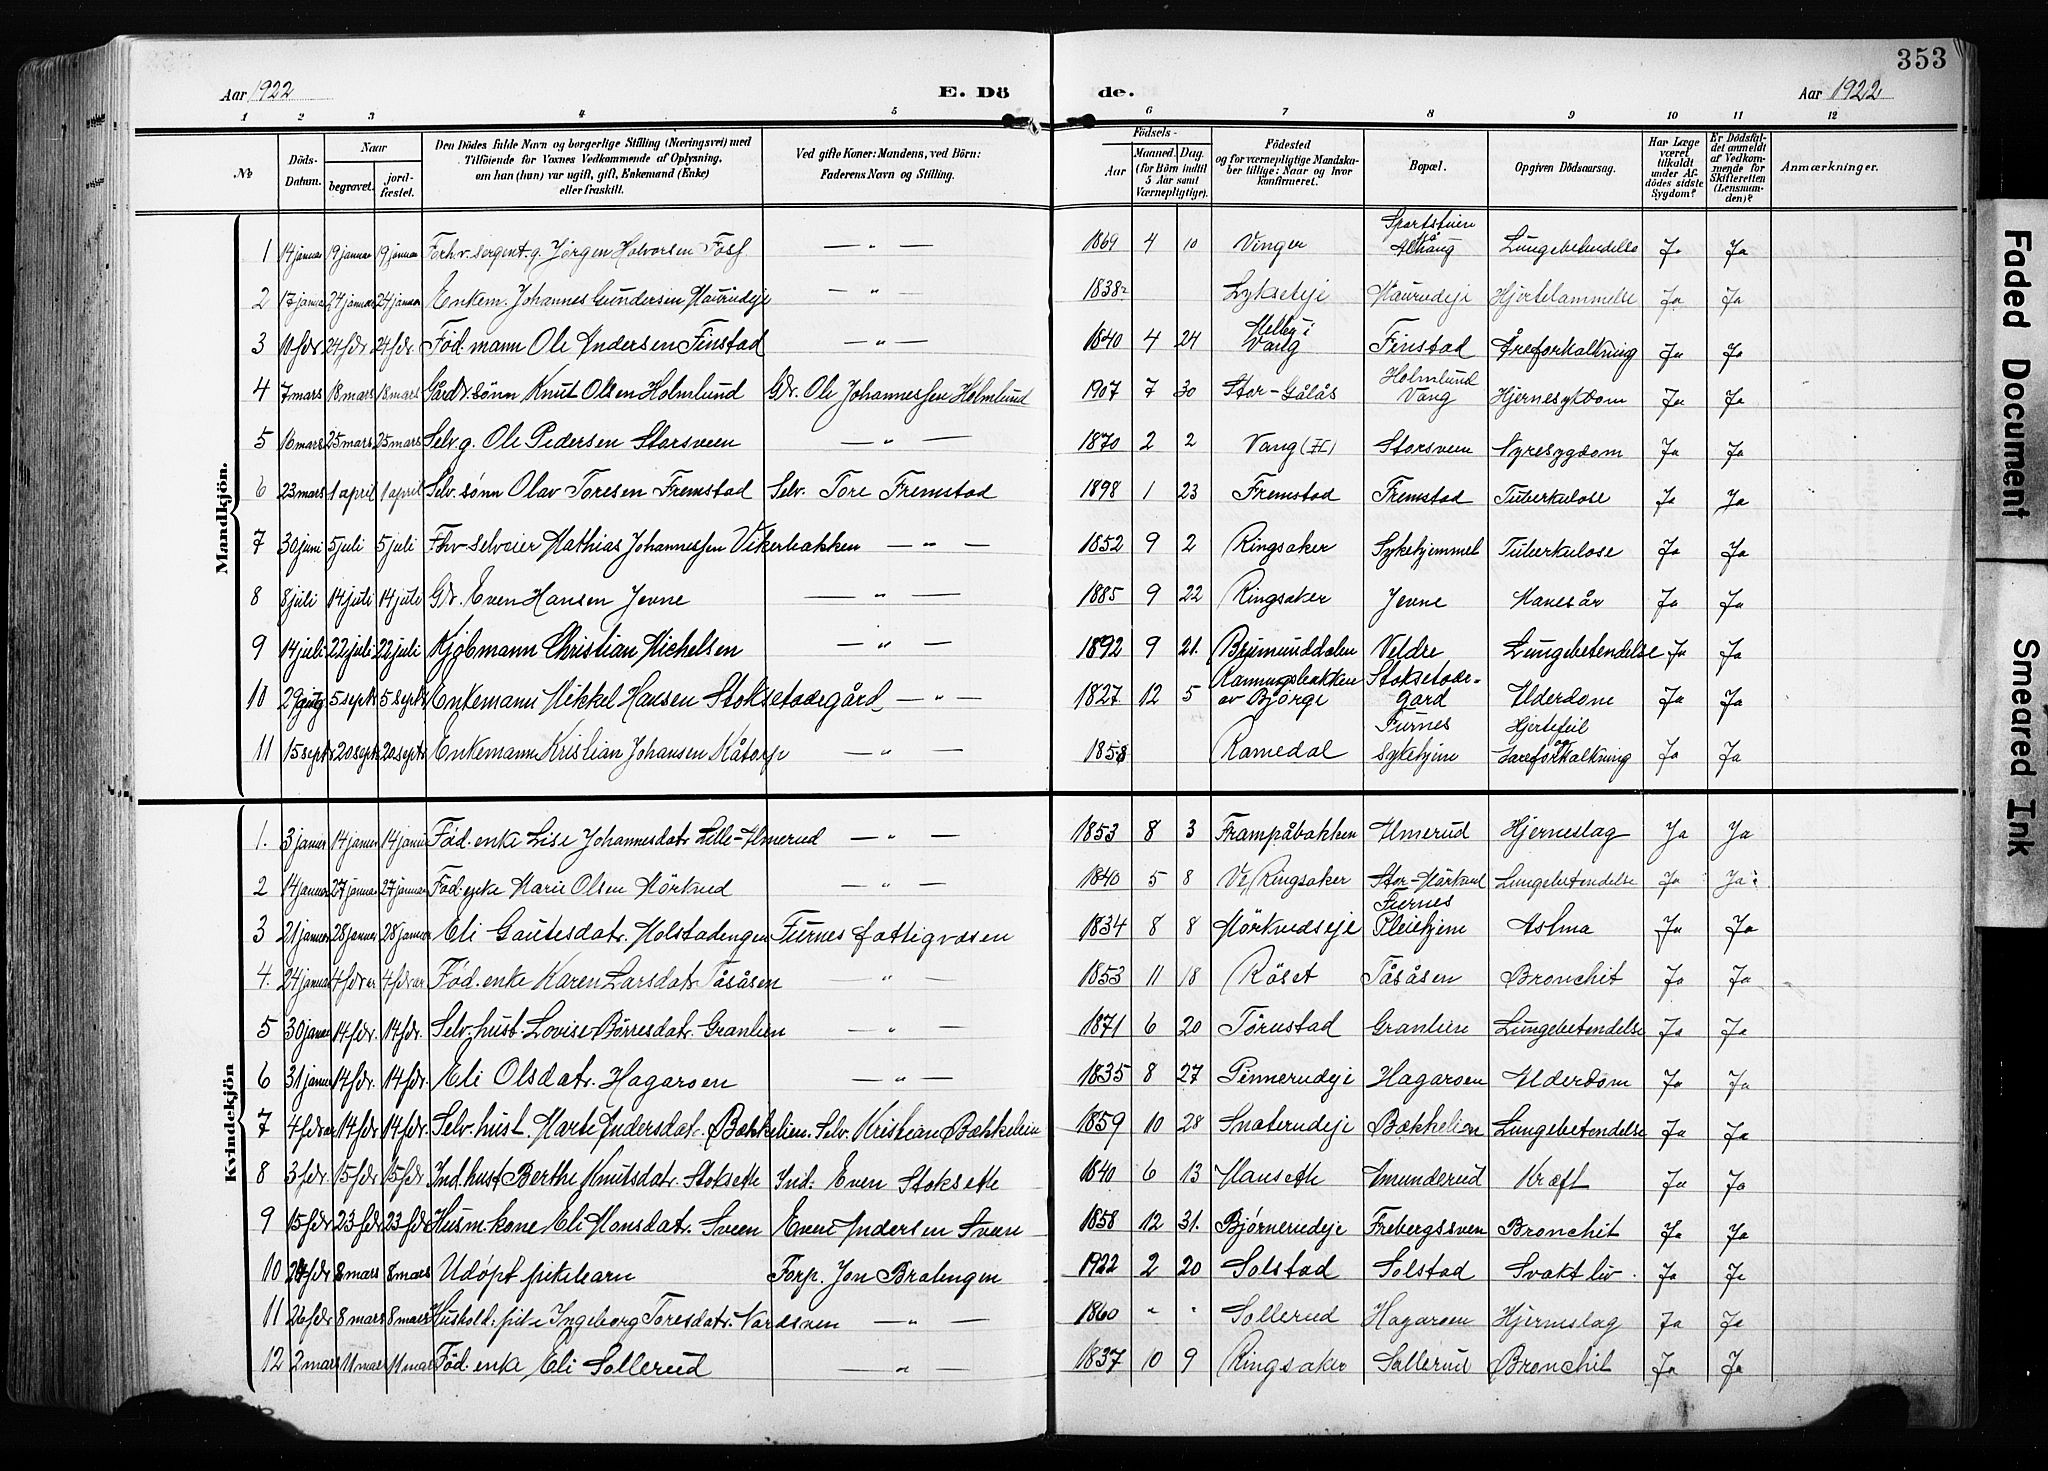 353
Aar 1922 E. Dö de. Aar 1922
1 2 3 4 5 6 7 8 9 10 11 12
№ Döds-Datum. Naar begravet. jord-fæstet. Den Dödes fulde Navn og borgerlige Stilling (Næringsvei) med Tilföiende for Voxnes Vedkommende af Oplysning, om han (hun) var ugift, gift, Enkemand (Enke) eller fraskilt. Ved gifte Koner: Mandens, ved Börn: Faderens Navn og Stilling. Födsels- Aar Maaned. Dag. (for Börn indtil 5 Aar samt Værnepligtige). Födested og for værnepligtige Mandskaber tillige: Naar og hvor konfirmeret. Bopæl. Opgiven Dödsaarsag. Har Læge været tilkaldt under Afdödes sidste Sygdom? Er Dödsfaldet anmeldt af Vedkommende for Skifteretten (Lensmanden)? Anmærkninger.
Mandkjön.
1 14 januar 19 januar 19 januar Forhv. sergent. g. Jörgen Halvorsen — " — 1869 4 10 Vinger Sportstuen på Alhaug Lungebetendelse Ja Ja
2 17 januar 24 januar 24 januar Enkem. Johannes Gundersen — " — 1838 Lykseteje Hjertelammelse Ja Ja
3 10 febr 24 febr 24 febr Föd. mann Ole Andersen Finstad — " — 1840 4 24 Melby i Vang Finstad Åreforkalkning Ja Ja
4 7 mars 18 mars 18 mars Gårdr. sönn Knut Olsen Holmlund Gdr. Ole Johannessen Holmlund 1907 7 30 Stor-Gålås Holmlund Vang Hjernesykdom Ja Ja
5 16 mars 25 mars 25 mars Selv. g. Ole Pedersen Storsveen — " — 1870 2 2 Vang (H) Storsveen Nyresygdom Ja Ja
6 23 mars 1 april 1 april Selv. sönn Olav Toresen Fremstad Selv. Tore Fremstad 1898 1 23 Fremstad Fremstad Tuberkulose Ja Ja
7 30 juni 5 juli 5 juli Fhv selveier Mathias Johannessen Vikerbakken — " — 1852 9 2 Ringsaker Sykehjemmet Tuberkulose Ja Ja
8 8 juli 14 juli 14 juli Gdr. Even Hansen Jevne — " — 1885 9 22 Ringsaker Jevne Mavesår Ja Ja
9 14 juli 22 juli 22 juli Kjöbmann Christian Michelsen — " — 1892 9 21. Brumunddalen Veldre Lungebetendelse Ja Ja
10 29 aug 5 septr 5 septr Enkemann Mikkel Hansen Stoksetødegård — " — 1827 12 5 av Björge Stoksetøde-gard Alderdom Ja Ja
11 15 septr 20 septr 20 septr Enkemann Kristian Johansen Kåtorp — " — 1858 Ramedal Furnes sykehjem Hjertefeil og åreforkalkning Ja Ja
Kvindekjön
1. 3 januar 14 januar 14 januar Föd. enke Lise Johannesdatr. Lille-Almerud — " — 1853 8 3 Frampåbakken Almerud Hjerneslag Ja Ja
2 14 januar 27 januar 27 januar Föd. enke Marie Olsen Mörkved — " — 1840 5 8 Ve, Ringsaker Stor-Mörkved Lungebetendelse Ja Ja
3 21 januar 28 januar 28 januar Eli Gautesdatr. Holstadengen Furnes fattigvæsen 1834 8 8 Mörkvedseje Furnes Pleiehjem Astma Ja Ja
4. 24 januar 4 febr 4 febr Föd. enke Karen Larsdatr. Tåsåsen — " — 1853 11 18 Röset Tåsåsen Bronchit Ja Ja
5 30 januar 14 febr. 14 febr. Selv. hust. Lovise Börresdatr. Granlien — " — 1871 6 20 Törustad Granlien Lungebetendelse Ja Ja
6 31 januar 14 febr. 14 febr. Eli Olsdatr. Hagaroen — " — 1835 8 27 Pinnerudeje Hagaroen Alderdom Ja Ja
7 4 febr 14 febr 14 febr. Selv. hust. Marte Andersdatr. Bækkelien. Selv. Kristian Bækkelien 1859 10 28 Snaterudeje Bækkelien Lungebetendelse Ja Ja
8 3 febr 15 febr 15 febr Ind. hust Berthe Knutsdatr. Stoksette Ind. Even Stoksette 1840 6 13 Hansette Amunderud Kræft Ja Ja
9 15 febr 23 febr 23 febr Husm. kone Eli Hansdatr. Sveen Even Andersen Sveen 1858 12 31. Björnerudeje Frebergssven Bronchit Ja Ja
10 24 febr 8 mars 8 mars Udöpt pikebarn Forp. Jon Bratengen 1922 2 20 Solstad Solstad Svakt liv. Ja Ja
11 26 febr 8 mars 8 mars Hushold. pike Ingeborg Toresdatr. Nordsven — " — 1860 " " Sollerud Hagaroen Hjerneslag Ja Ja
12 2 mars 11 mars 11 mars Föd. enke Eli Sollerud — " — 1837 10 9 Ringsaker Sollerud Bronchit Ja Ja
Faded Document
Smeared Ink